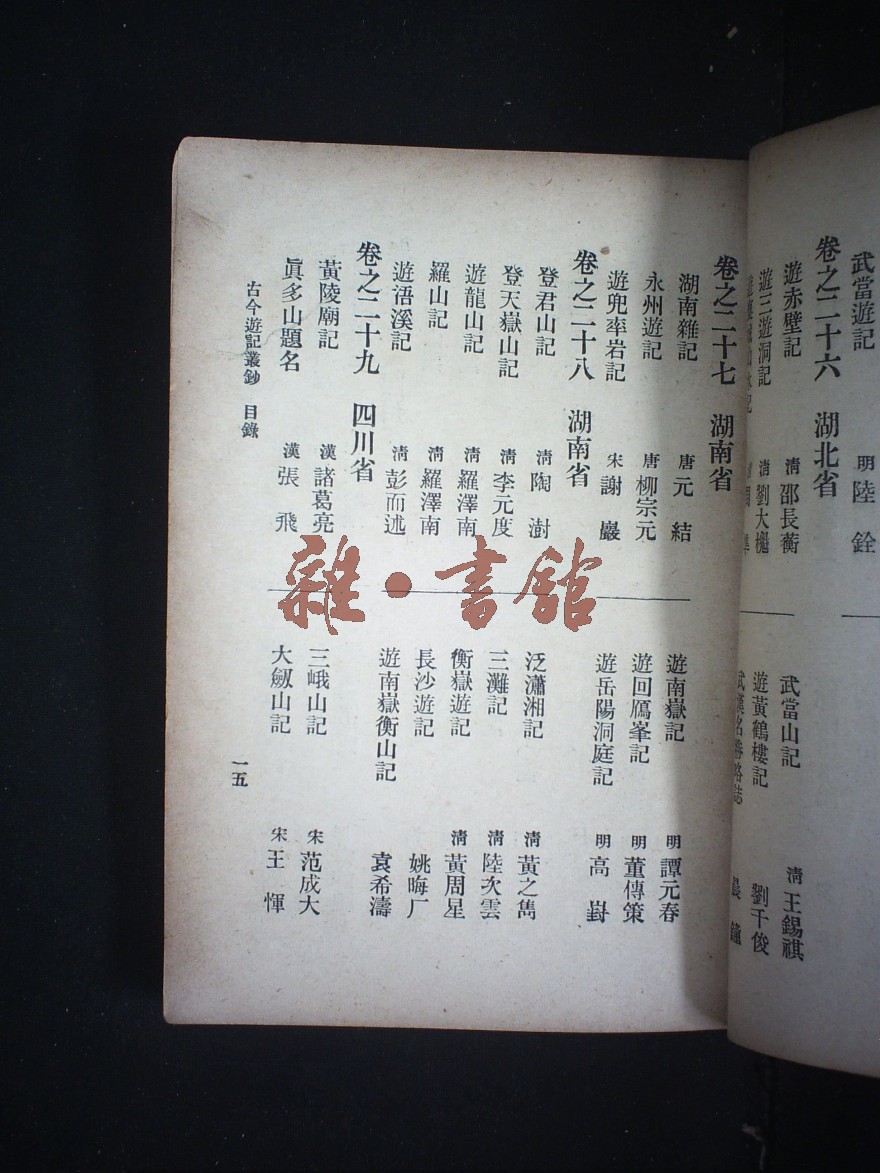 武當遊記 明 陸銓
卷之二十六 湖北省
遊赤壁記 清 邵長蘅
武當山記 清 王錫祺
遊三遊洞記 清 劉大櫆
遊黃鶴樓記 劉干俊
武漢名勝略誌
卷之二十七 湖南省
湖南雜記 唐 元結
遊南嶽記 明 譚元春
永州遊記 唐 柳宗元
遊回鴈峯記 明 董傳策
遊兜率岩記 宋 謝巖
遊岳陽洞庭記 明 高㟳
卷之二十八 湖南省
登君山記 清 陶澍
泛瀟湘記 清 黃之雋
登天嶽山記 清 李元度
三灘記 清 陸次雲
遊龍山記 清 羅澤南
衡嶽遊記 清 黃周星
羅山記 清 羅澤南
長沙遊記 姚晦厂
遊浯溪記 清 彭而述
遊南嶽衡山記 袁希濤
卷之二十九 四川省
黃陵廟記 漢 諸葛亮
三峨山記 宋 范成大
眞多山題名 漢 張飛
大劔山記 宋 王惲
古今遊記叢鈔 目錄
一五
雜·書館